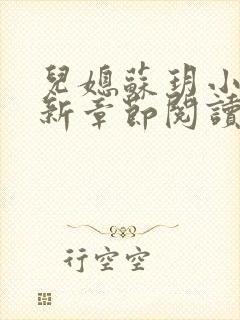 兒媳蘇玥小
新章節閱讀
行空空